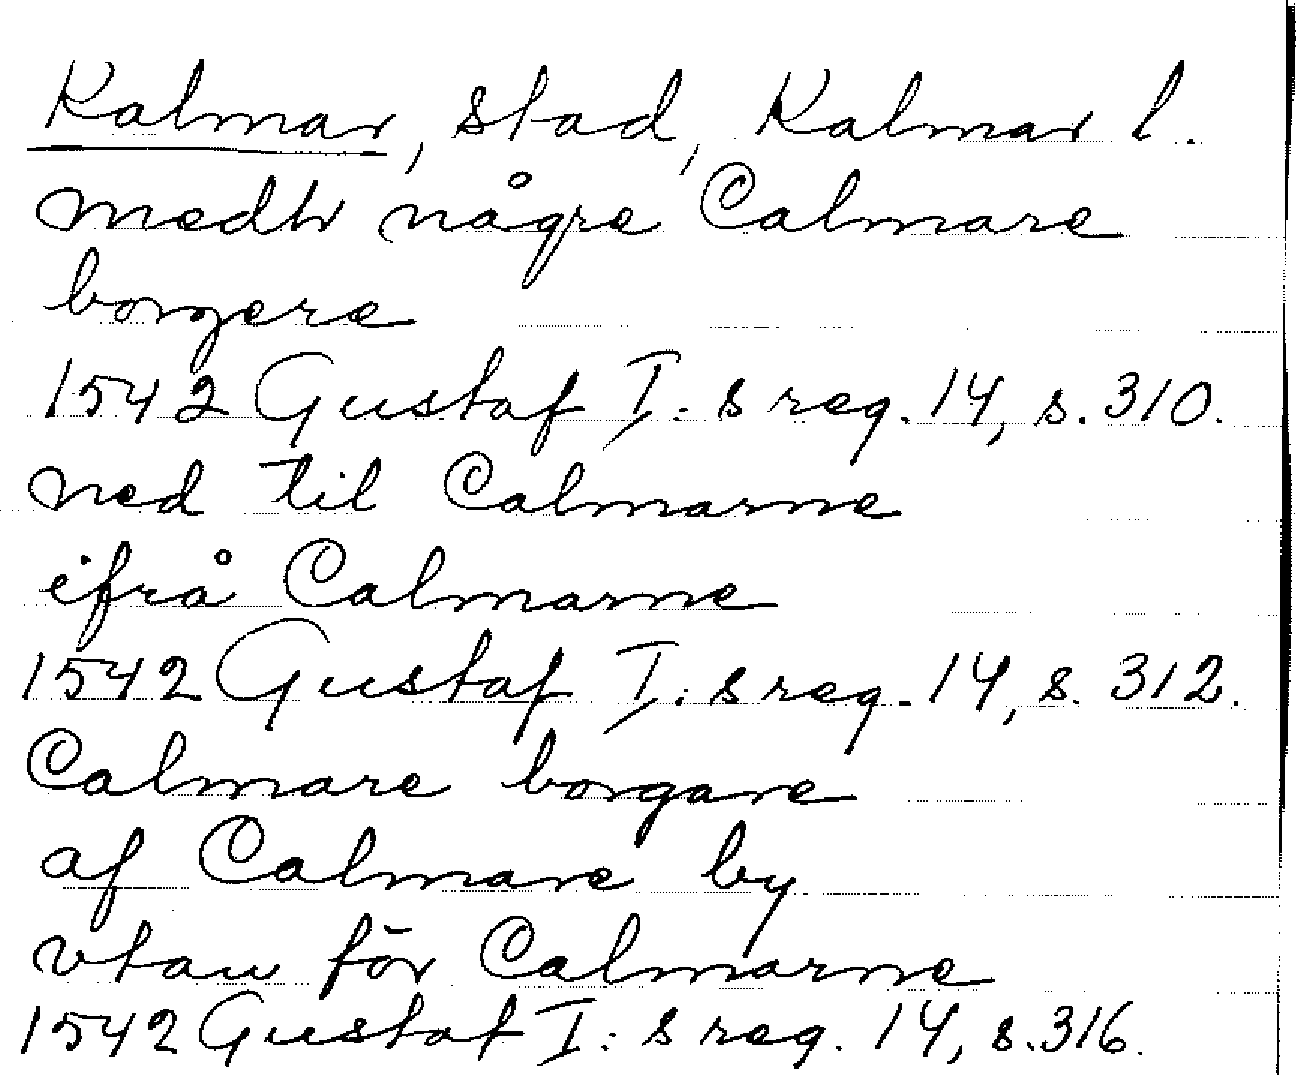 Kalmar, stad, Kalmar l.
medh någre Calmare
borgere
1542 Gustaf I:s reg. 14, s. 310.
ned til Calmarne
ifrå Calmarne
1542 Gustaf I:s reg. 14, s. 312.
Calmare borgare
af Calmare by
vtan för Calmarne
1542 Gustaf I:s reg. 14, s. 316.